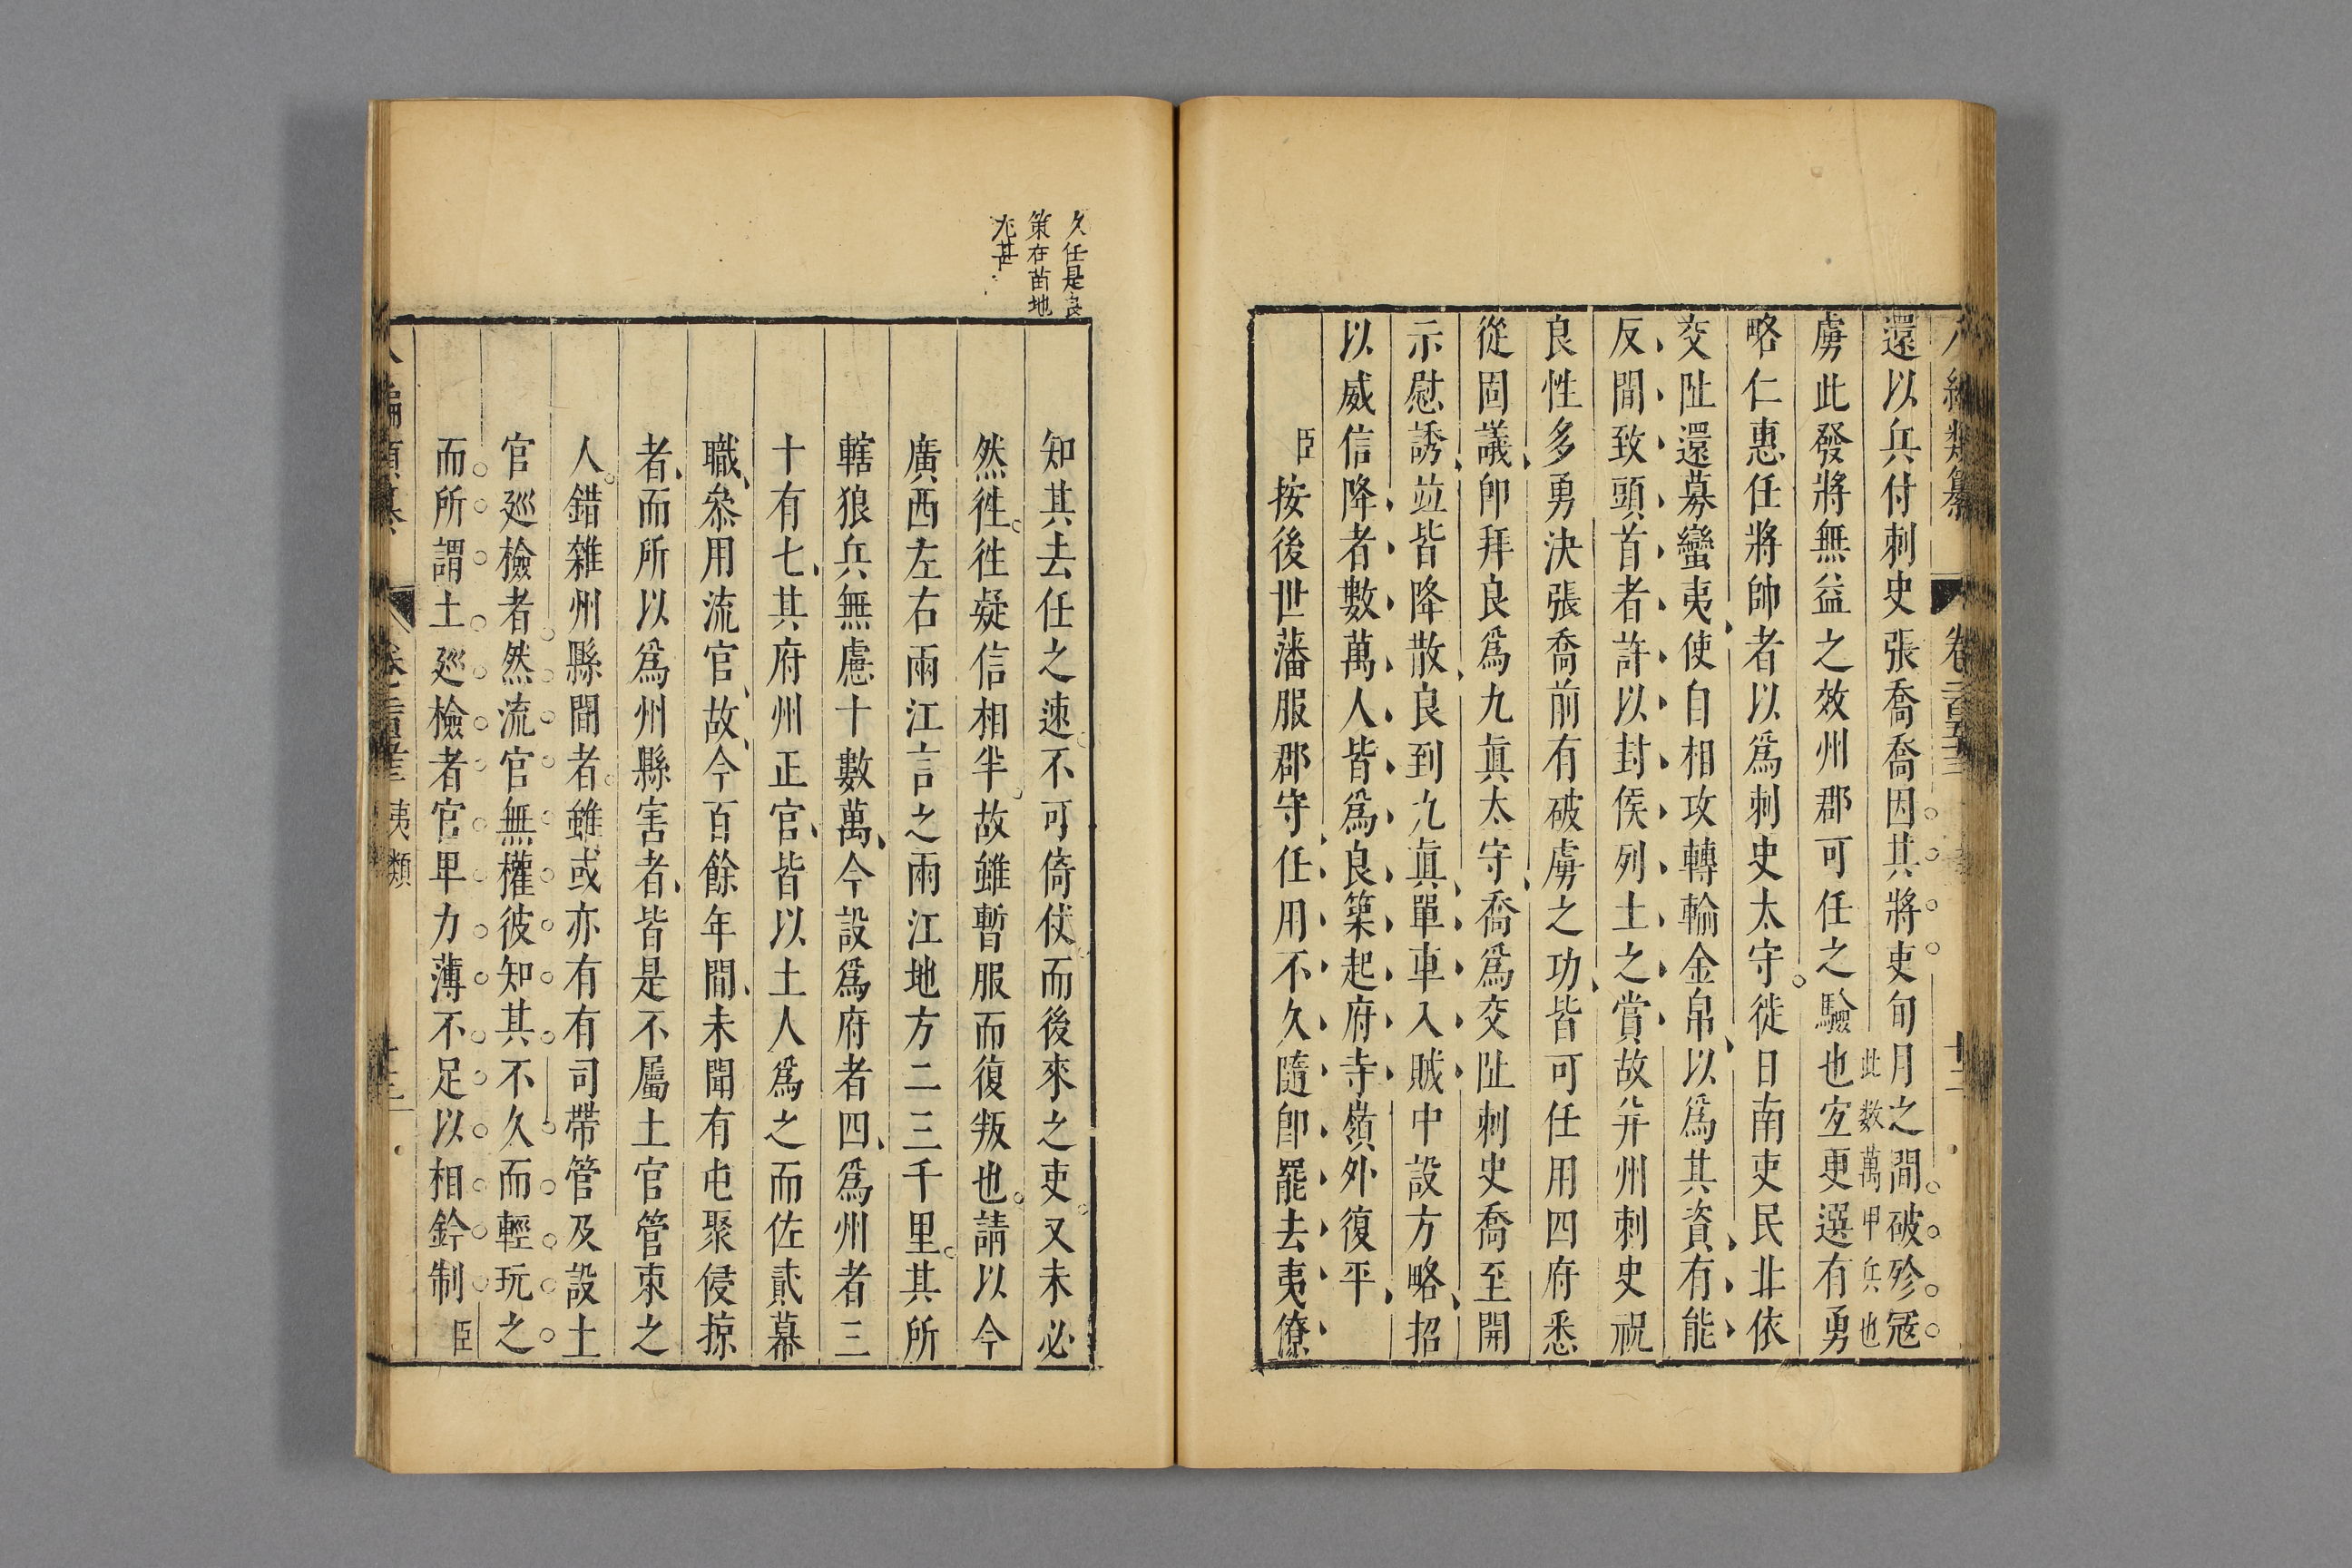 八編類纂 卷二百五十三 十二
還以兵付刺史張喬喬因其將吏旬月之間破殄寇
虜此發將無益之效州郡可任之驗也此数萬甲兵也宐更選有勇
略仁惠任將帥者以爲刺史太守徙日南吏民北依
交阯還募蠻夷使自相攻轉輸金帛以爲其資有能
反間致頭首者許以封侯列土之賞故并州刺史祝
良性多勇決張喬前有破虜之功皆可任用四府悉
從固議卽拜良爲九眞太守喬爲交阯刺史喬至開
示慰誘竝皆降散良到九眞單車入賊中設方略招
以威信降者數萬人皆爲良築起府寺嶺外復平
臣按後世藩服郡守任用不久隨卽罷去夷僚
久任是良
策在苗地
尤甚
知其去任之速不可倚仗而後來之吏又未必
然徃徃疑信相半故雖暫服而復叛也請以今
廣西左右兩江言之兩江地方二三千里其所
轄狼兵無慮十數萬今設爲府者四爲州者三
十有七其府州正官皆以土人爲之而佐貳幕
職叅用流官故今百餘年間未聞有屯聚侵掠
者而所以爲州縣害者皆是不屬土官管束之
人錯雜州縣間者雖或亦有有司帶管及設土
官廵檢者然流官無權彼知其不久而輕玩之
而所謂土廵檢者官卑力薄不足以相鈐制臣
八編類纂 卷二百五十三 夷類 十三